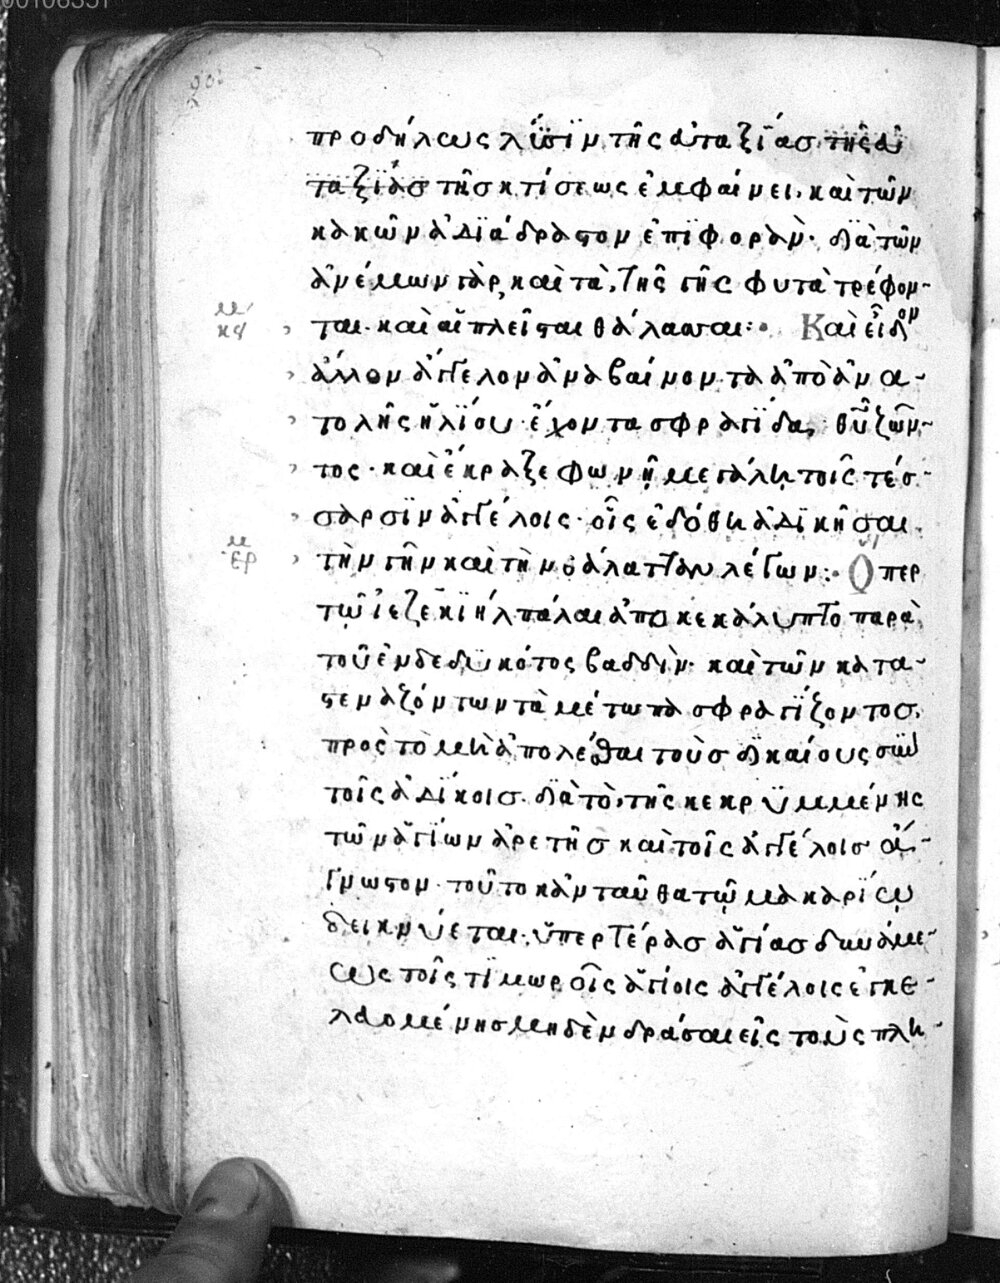 προδήλως λύσϊν τῆς ἀταξΐας τῆς ἀ
ταξΐας τῆς κτίσεως ἐμφαίνει· καὶ τῶν
κακῶν ἀδϊάδραστον ἐπϊφοράν· διὰ τῶν
ἀνέμων γὰρ, καὶ τὰ τῆς γῆς φυτὰ τρέφον-
ται· καὶ αἳ πλεῖσται θάλασσαι:· Καὶ εἶδον
ἄλλον ἄγγελον ἀναβαίνοντα ἀπὸ ἀνα-
τολῆς ἡλΐου· ἔχοντα σφραγΐδα, θῡ ζῶν-
τος· καὶ ἔκραξε φωνῇ μεγάλη τοῖς τέσ-
σαρσϊν ἀγγέλοις· οἷς ἐδόθη ἀδϊκῆσαι
τὴν γῆν καὶ τὴν θάλατταν λέγων:· Ὅπερ
τῷ ἰεζεκϊὴλ πάλαι ἀποκεκάλυπτο παρὰ
τοῦ ἐνδεδϋκότος βαδδὶν· καὶ τῶν κατα-
στεναζόντων τὰ μέτωπα σφραγΐζοντος,
πρὸς τὸ μὴ ἀπολέσθαι τοὺς δικαίους σὺν
τοῖς ἀδΐκοις· διὰ τὸ, τῆς κεκρϋμμένης
τῶν ἁγΐων ἀρετῆς καὶ τοῖς ἀγγέλοις ἄ-
γνωστον· τοῦτο κἀνταῦθα τῷ μακαρΐω
δεικνύεται· ὑπερτέρας ἁγίας δυνάμε-
ως τοῖς τϊμωροῖς ἁγίοις ἀγγέλοις ἐγκε-
λαομένης μηδὲν δράσαι εἰς τοὺς πλη-